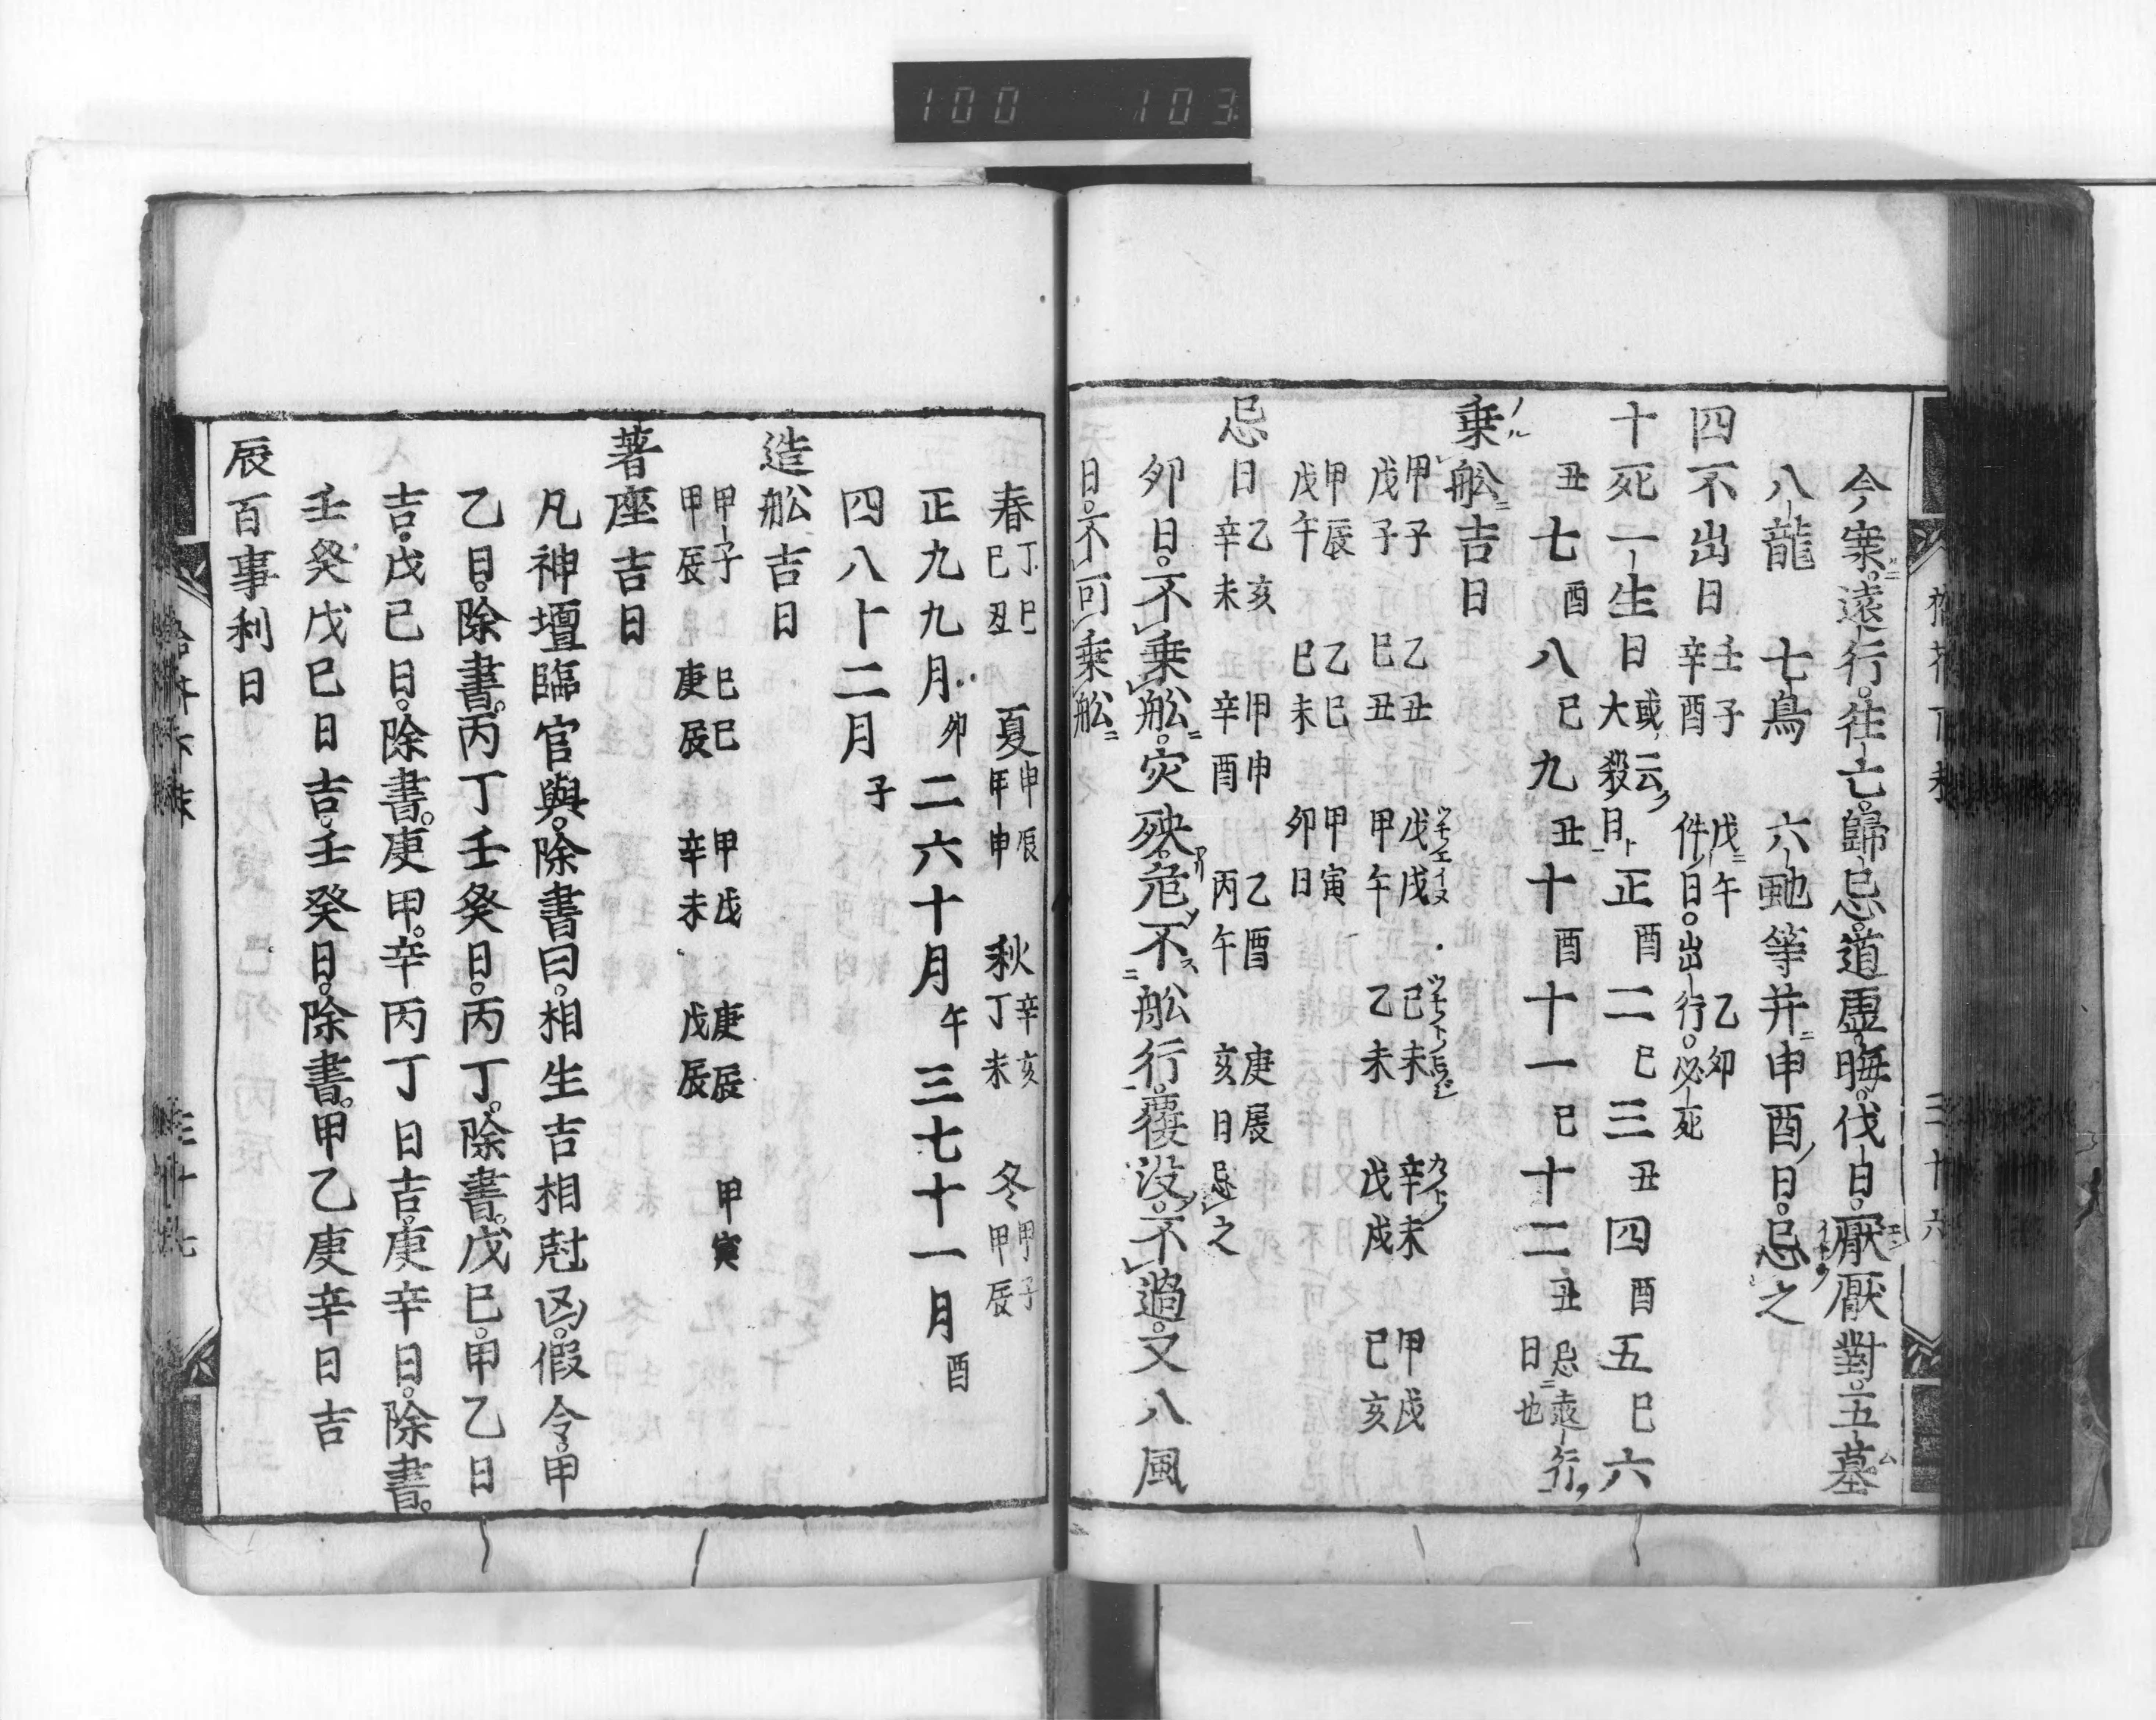 100 103
今案遠行往亡歸忌道虛晦伐日厭厭對五墓
八龍 七鳥 六虵等并申酉日忌之
四不出日 壬子 辛酉 戊午 乙卯 件日出行必死
十死一生日 或云大殺日 正酉二巳三丑四酉五巳六
丑七酉八巳九丑十酉十一巳十二丑 忌遠行日也
乗舩吉日
甲子 乙丑 戊戌 己未 辛未 甲戌
戊子 巳丑 甲午 乙未 戊戌 巳亥
甲辰 乙巳 甲寅
戊午 巳未 卯日
忌日 乙亥 甲申 乙酉 庚辰
辛未 辛酉 丙午 亥日忌之
卯日不乗舩灾殃危不舩行覆没不過又八風
日不可乗舩
三十六
春 丁巳 巳丑 夏 甲辰 甲申 秋 辛亥 丁未 冬 甲子 甲辰
正九九月卯二六十月午三七十一月酉
四八十二月子
造舩吉日
甲子 巳巳 甲戌 庚辰 甲寅
甲辰 庚辰 辛未 戊辰
著座吉日
凡神壇臨官與除書曰相生吉相尅凶假令甲
乙日除書丙丁壬癸日丙丁除書戊巳甲乙日
吉戊巳日除書庚甲辛丙丁日吉庚辛日除書
壬癸戊巳日吉壬癸日除書甲乙庚辛日吉
辰百事利日
三十七